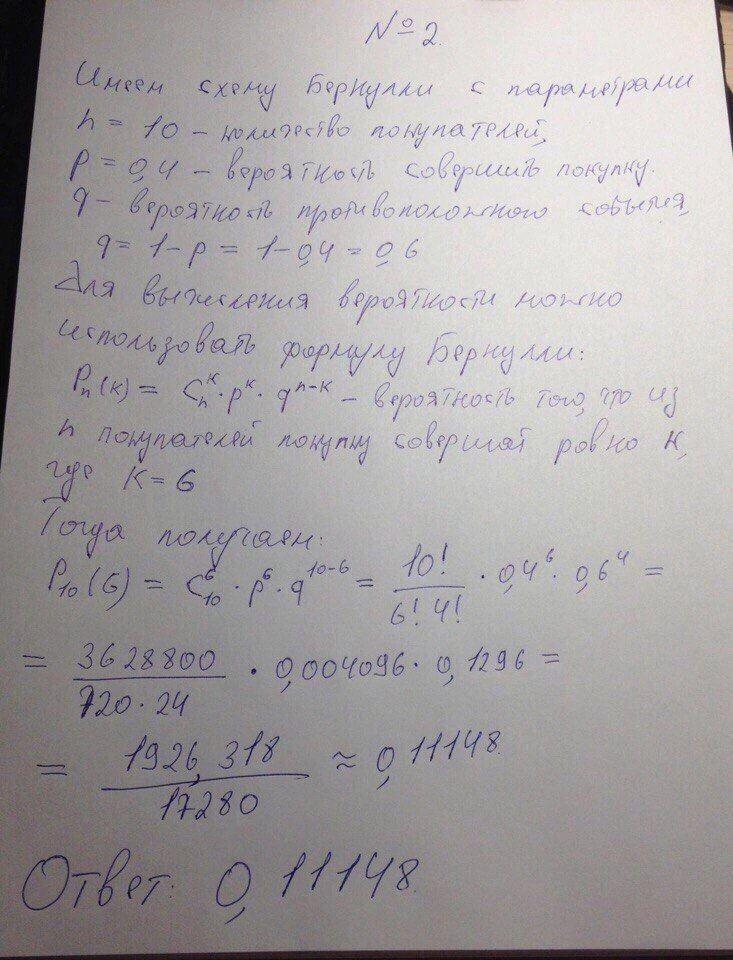 № 2.
Имеем схему Бернулли с параметрами
n = 10 – количество покупателей,
p = 0,4 – вероятность совершить покупку.
q – вероятность противоположного события,
q = 1 – p = 1 – 0,4 = 0,6
Для вычисления вероятности можно
использовать формулу Бернулли:
Pₙ(к) = Cₙᵏ · pᵏ · qⁿ⁻ᵏ – вероятность того, что из
n покупателей покупку совершат ровно к,
где К = 6
Тогда получаем:
P₁₀(6) = C₁₀⁶ · p⁶ · q¹⁰⁻⁶ = 10! / 6! 4! · 0,4⁶ · 0,6⁴ =
= 3628800 / 720 · 24 · 0,004096 · 0,1296 =
= 1926,318 / 17280 ≈ 0,11148.
Ответ: 0,11148.